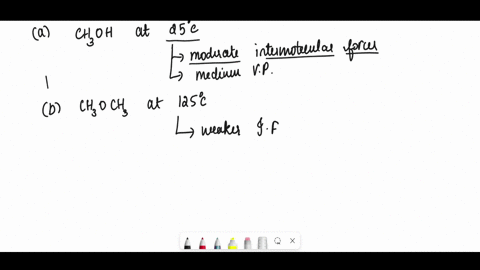 (a) CH3OH at 25°C
→ moderate intermolecular forces
→ medium V.P.
(b) CH3OCH3 at 125°C
→ weaker I.F